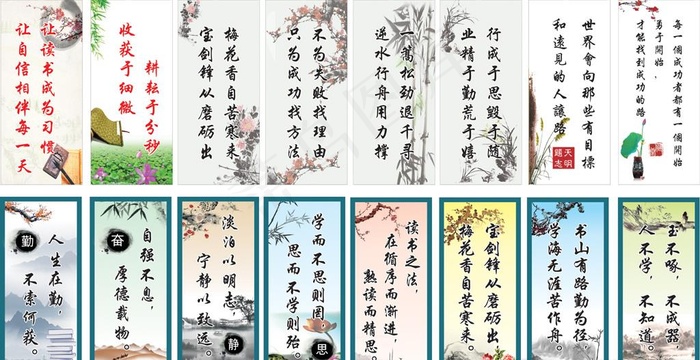 让读书成为习惯
让自信相伴每一天
耕耘于分秒
收获于细微
梅花香自苦寒来
宝剑锋从磨砺出
不为失败找理由
只为成功找方法
一篙松劲退千寻
逆水行舟用力撑
行成于思毁于随
业精于勤荒于嬉
世界會向那些有目標
和遠見的人讓路
每一個成功者都有一個開始
勇于開始，
才能找到成功的路
人生在勤，
不索何获。
勤
自强不息，
厚德载物。
奋
淡泊以明志，
宁静以致远。
静
学而不思则罔
思而不学则殆。
思
读书之法，
在循序而渐进，
熟读而精思。
宝剑锋从磨砺出
梅花香自苦寒来。
书山有路勤为径，
学海无涯苦作舟。
玉不啄，不成器，
人不学，不知道。